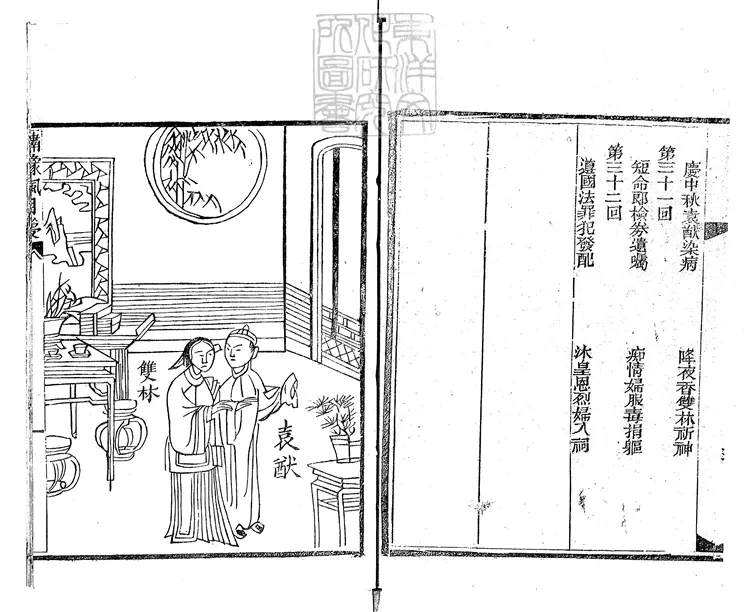 慶中秋袁猷染病　降夜香雙林祈神
第三十一回
短命郎檢券遺囑　痴情婦服毒捐軀
第三十二回
遵國法罪犯發配　沐皇恩烈婦入祠
雙林
袁猷
風月夢